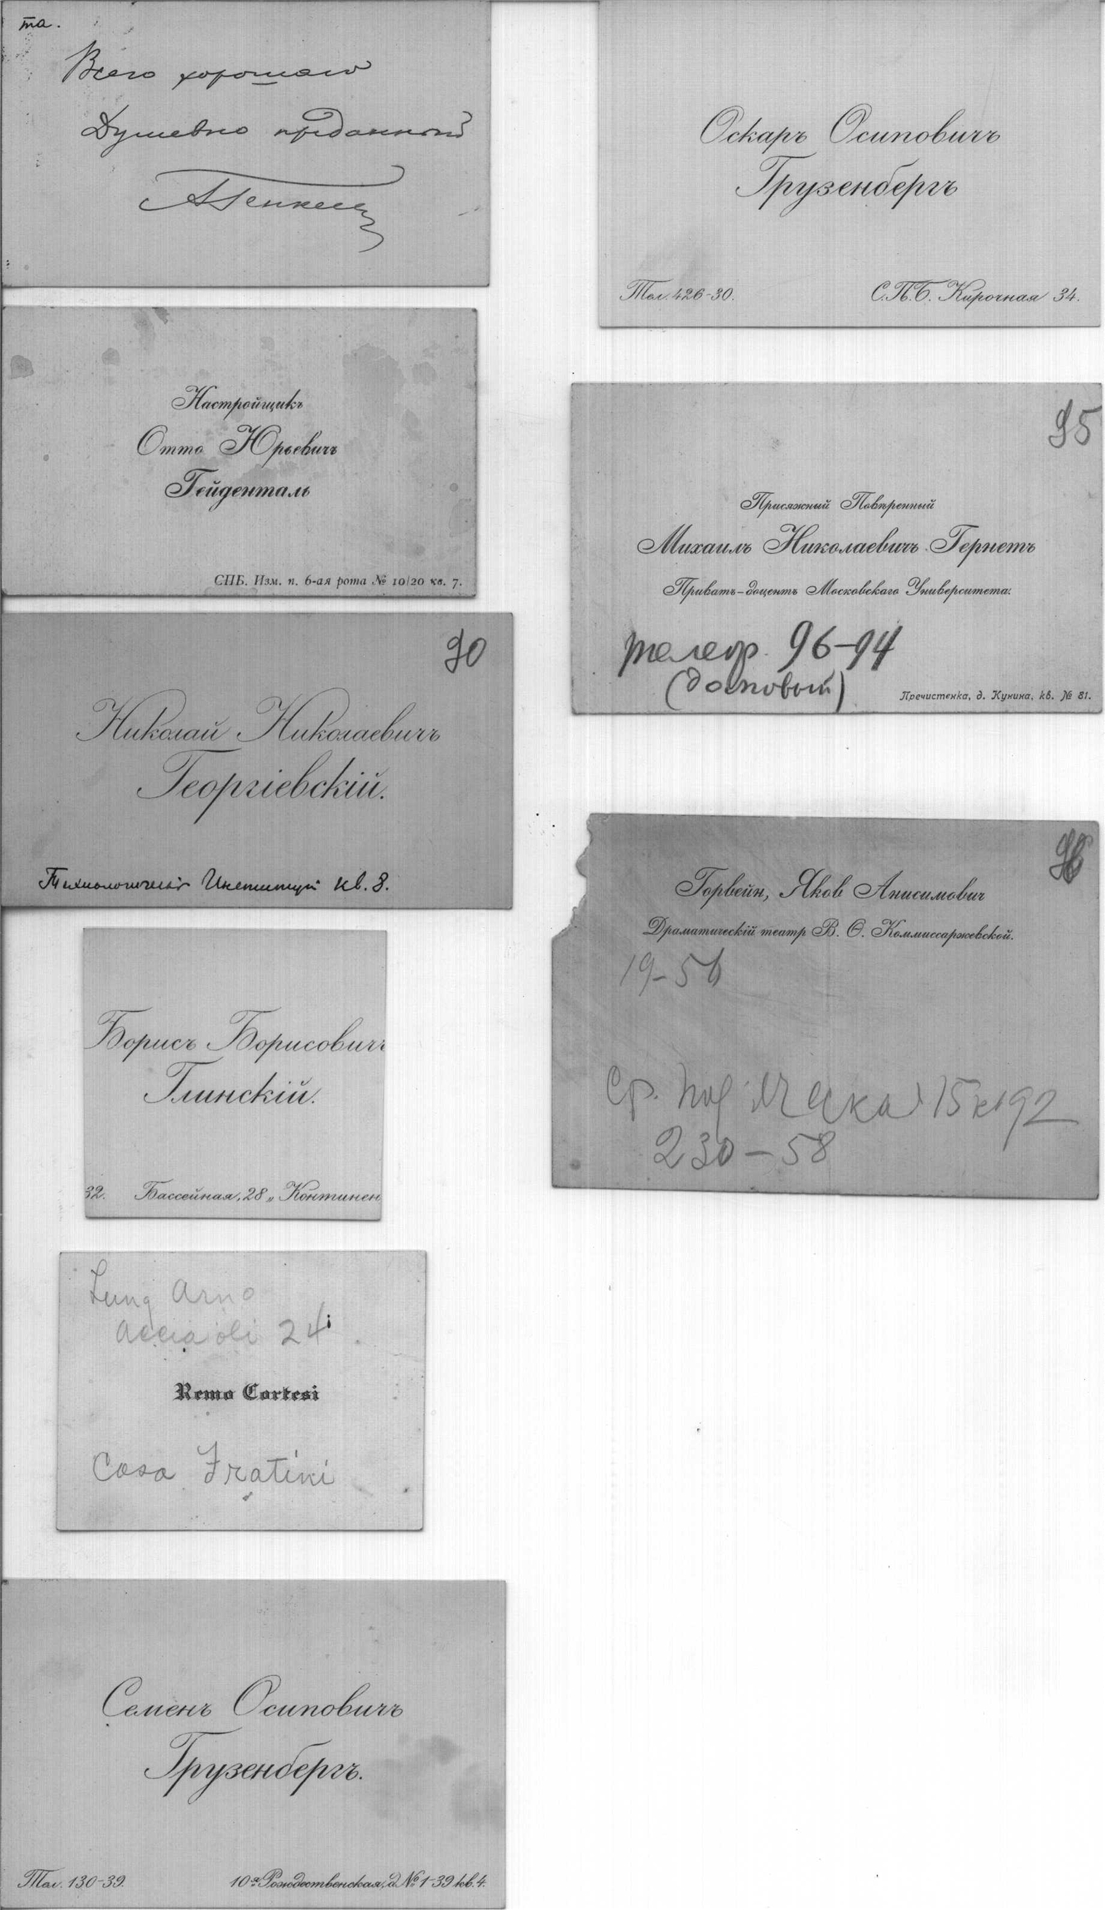 та.
Всего хорошаго
Душевно преданный
АГенкель
Настройщикъ
Отто Юрьевичъ
Гейденталь
СПБ. Изм. п. 6-ая рота № 10/20 кв. 7.
90
Николай Николаевичъ
Георгіевскій.
Технологическій Институт кв. 3.
Борисъ Борисовичъ
Глинскій.
32. Бассейная, 28 „Континен
Lung Arno
Acciaioli 24
Remo Cortesi
Casa Fratini
Семенъ Осиповичъ
Грузенбергъ.
Тел. 130-39.
10ая Рождественская, д. № 1-39 кв. 4.
Оскаръ Осиповичъ
Грузенбергъ
Тел. 426-30.
С.П.Б. Кирочная 34.
95
Присяжный Повѣренный
Михаилъ Николаевичъ Гернетъ
Приватъ-доцентъ Московскаго Университета.
телеф. 96-94
(домовый)
Пречистенка, д. Кунина, кв. № 81.
96
Горвейн, Яков Анисимович
Драматическій театр В. Ѳ. Коммиссаржевской.
19-56
Ср. 15 кв 92
230-58